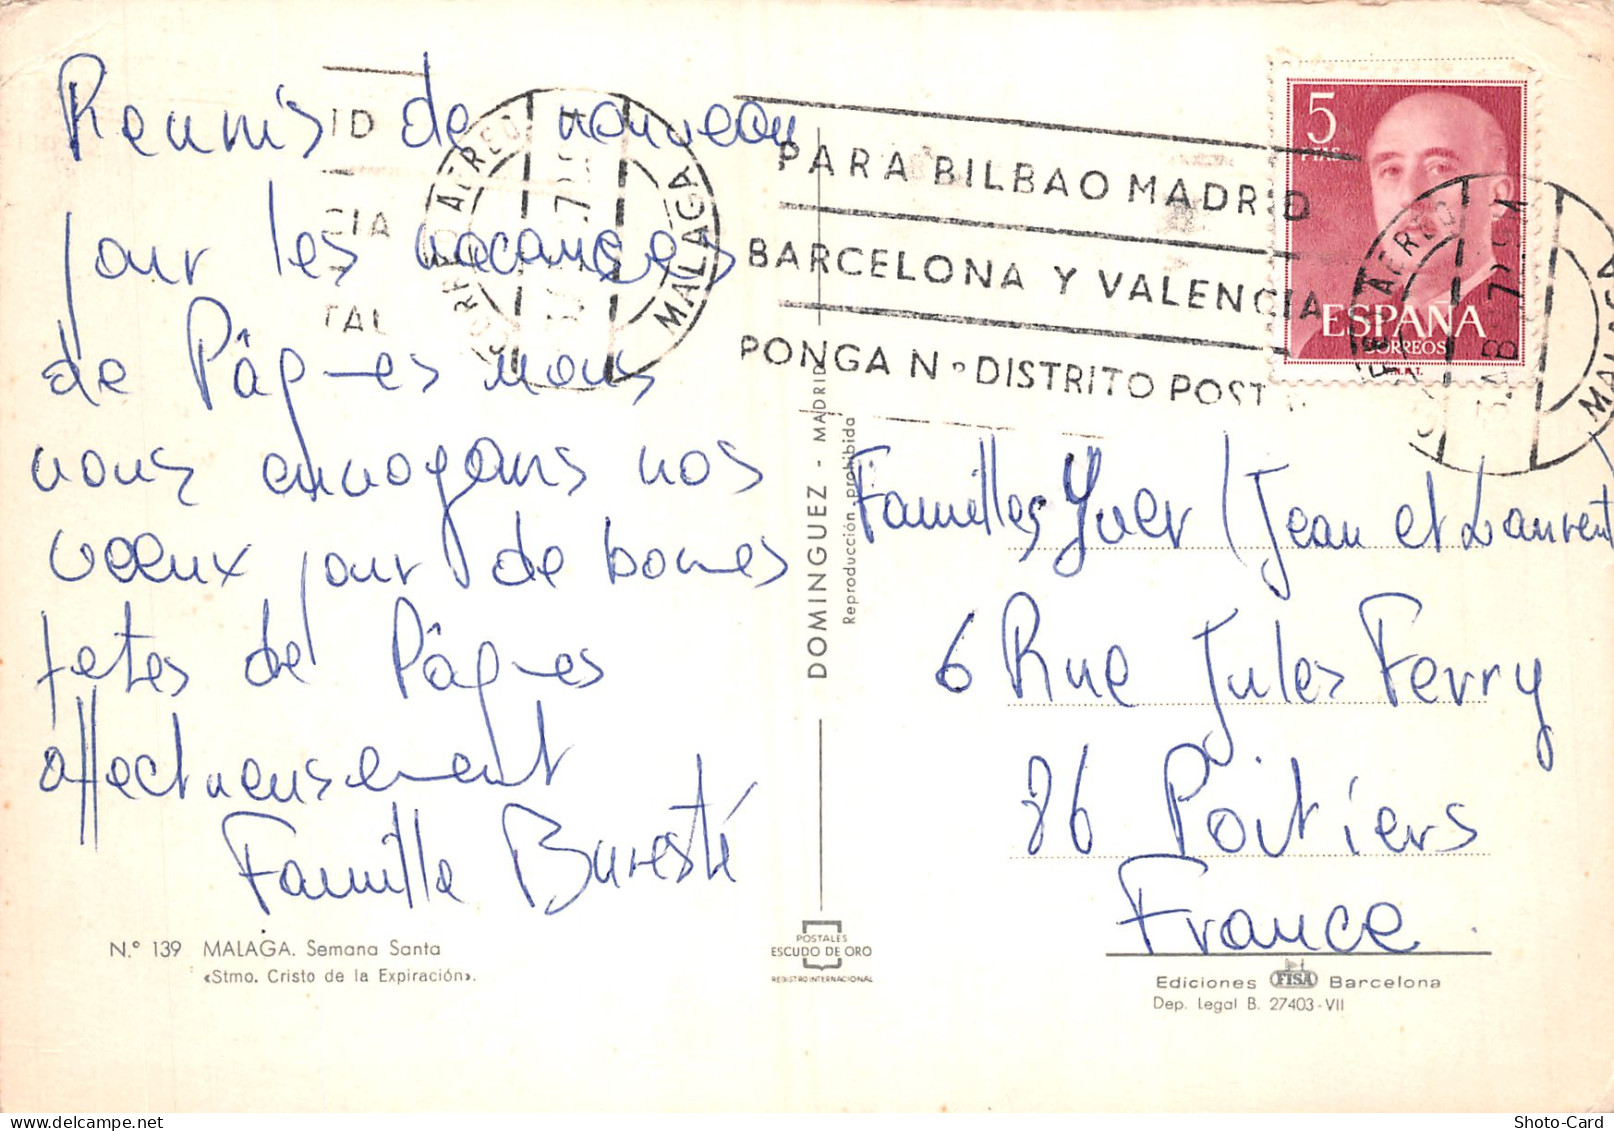 Reunis de nouveau
pour les vacances
de Pâques nous
vous envoyons nos
voeux pour de bonnes
fetes de Pâques
affectueusement
Famille Buresté
N.º 139 MALAGA. Semana Santa
«Stmo. Cristo de la Expiración».
ID
CIA
TAL
CORREO AEREO
MALAGA
PARA BILBAO MADRID
BARCELONA Y VALENCIA
PONGA Nº DISTRITO POST
5
PTAS
ESPAÑA
CORREOS
F.N.M.T.
CORREO AEREO
MALAGA
DOMINGUEZ - MADRID
Reproducción prohibida
POSTALES
ESCUDO DE ORO
REGISTRO INTERNACIONAL
Familles Yver (Jean et Laurent
6 Rue Jules Ferry
86 Poitiers
France
Ediciones FISA Barcelona
Dep. Legal B. 27403-VII
Shoto-Card